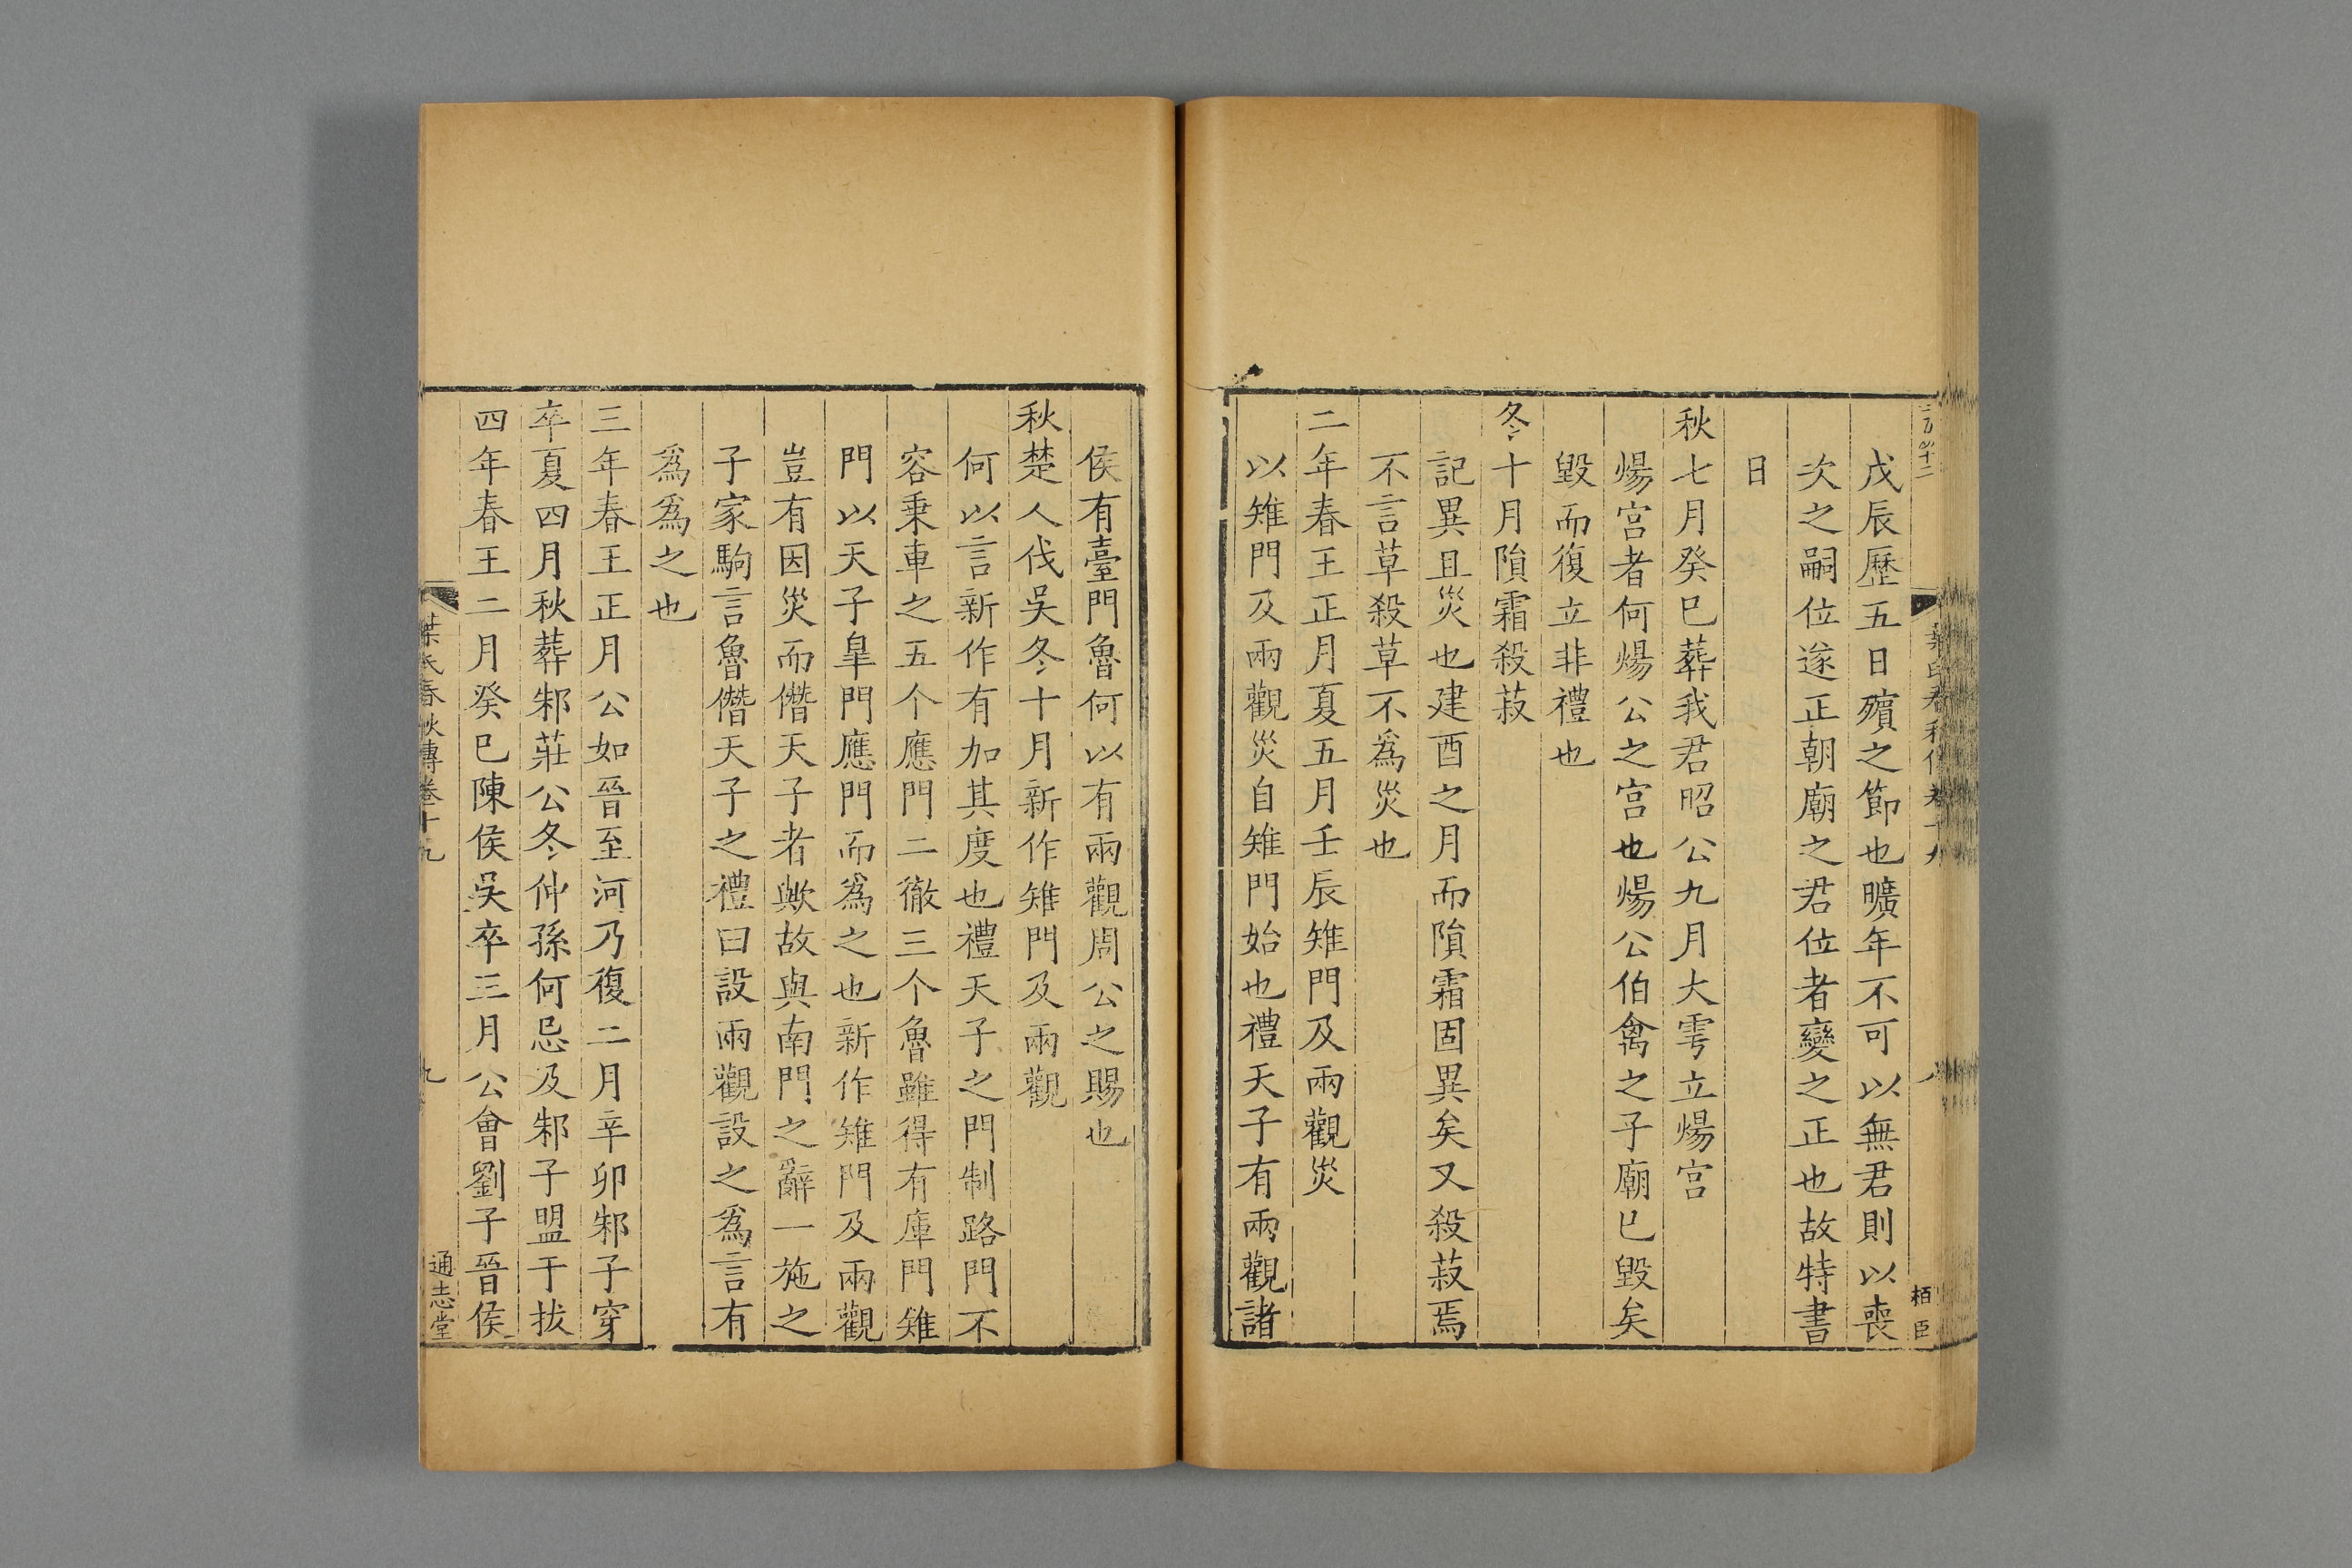 戊辰歷五日殯之節也曠年不可以無君則以喪
次之嗣位遂正朝廟之君位者變之正也故特書
日
秋七月癸巳葬我君昭公九月大雩立煬宮
煬宮者何煬公之宮也煬公伯禽之子廟已毀矣
毀而復立非禮也
冬十月隕霜殺菽
記異且災也建酉之月而隕霜固異矣又殺菽焉
不言草殺草不爲災也
二年春王正月夏五月壬辰雉門及兩觀災
以雉門及兩觀災自雉門始也禮天子有兩觀諸
栢臣
侯有臺門魯何以有兩觀周公之賜也
秋楚人伐吳冬十月新作雉門及兩觀
何以言新作有加其度也禮天子之門制路門不
容乗車之五个應門二徹三个魯雖得有庫門雉
門以天子臯門應門而爲之也新作雉門及兩觀
豈有因災而僭天子者歟故與南門之辭一施之
子家駒言魯僭天子之禮曰設兩觀設之爲言有
爲爲之也
三年春王正月公如晉至河乃復二月辛卯邾子穿
卒夏四月秋葬邾莊公冬仲孫何忌及邾子盟于拔
四年春王二月癸巳陳侯吳卒三月公會劉子晉侯
葉氏春秋傳卷十九
九
通志堂